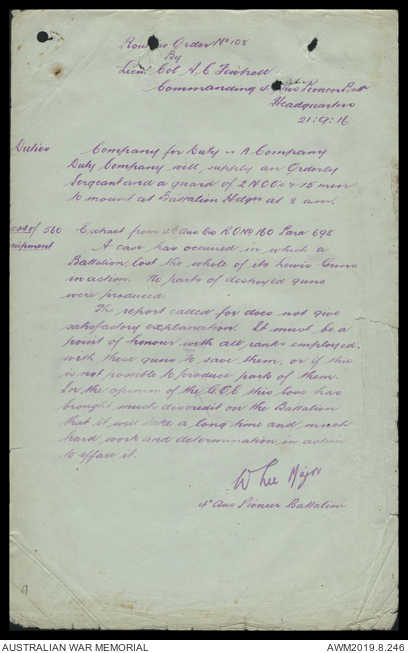 Routine Order No 108
By
Lieut Col A.C. Fewtrell
Commanding 4th Aus Pioneer Battn
Headquarters
21:9:16
Duties Company for Duty - A Company
Duty Company will supply an Orderly
Sergeant and a guard of 2 NCO's & 15 men
to mount at Battalion Hdqrs at 8 am.
Loss of 560 Extract from 4th Aus Div R.O No 160 Para 695
Equipment
A case has occured in which a
Battalion lost the whole of its Lewis Guns
in action. No parts of destroyed guns
were produced
The report called for does not give
satisfactory explanation. It must be a
point of honour with all ranks employed
with these guns to save them, or if this
is not possible to produce parts of them.
In the opinion of the G.O.C this loss has
brought much discredit on the Battalion
that it will take a long time and much
hard work and determination in action
to efface it.
Major
4th Aus Pioneer Battalion
AUSTRALIAN WAR MEMORIAL
AWM2019.8.246